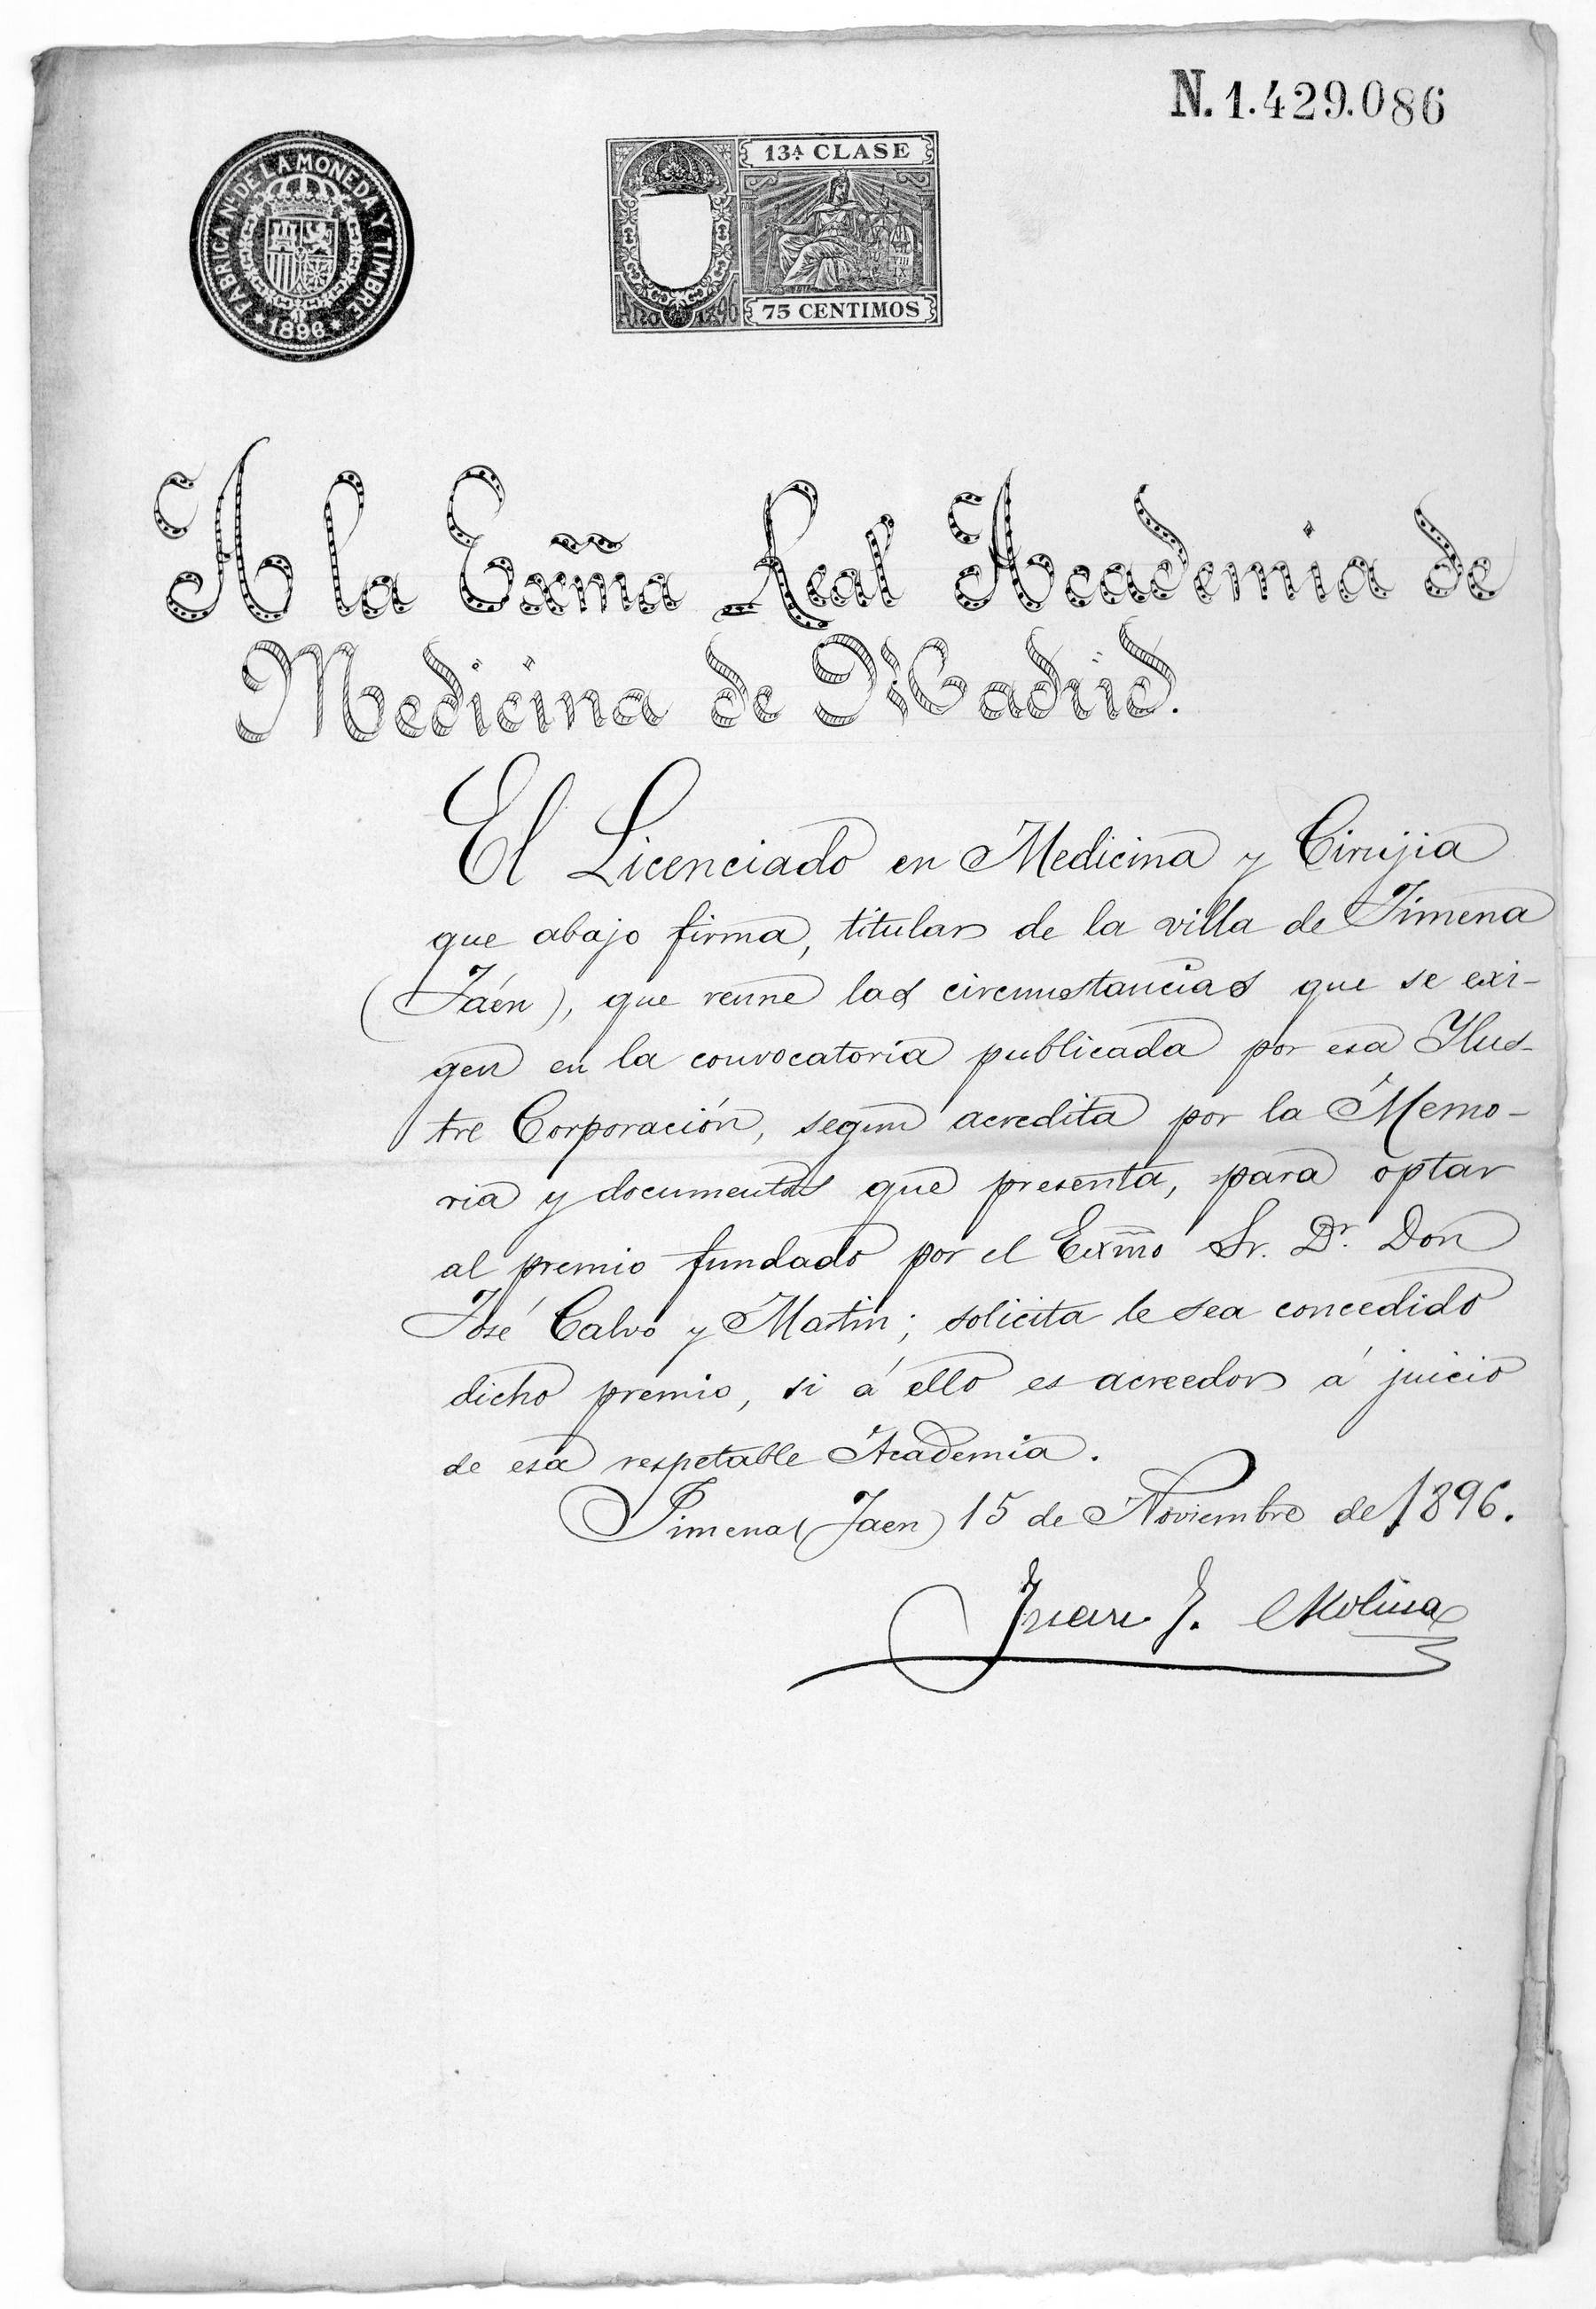 N. 1.429.086
FABRICA Nal. DE LA MONEDA Y TIMBRE
* 1896 *
13ª CLASE
75 CENTIMOS
A la Exm̃a Real Academia de
Medicina de Madrid.
El Licenciado en Medicina y Cirujia
que abajo firma, titular de la villa de Jimena
(Jaén), que reune las circumstancias que se exi-
gen en la convocatoria publicada por esa Ylus-
tre Corporación, segun acredita por la Memo-
ria y documentos que presenta, para optar
al premio fundado por el Exm̃o Sr. Dr. Don
José Calvo y Martin; solicita le sea concedido
dicho premio, si á ello es acreedor á juicio
de esa respetable Academia.
Jimena (Jaen) 15 de Noviembre de 1896.
Juan J. Molina